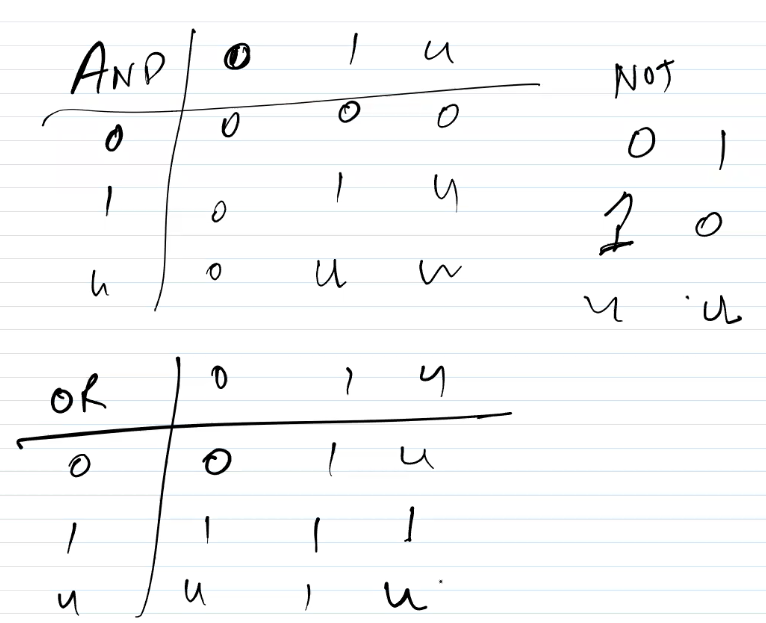 AND 0 1 u
0 0 0 0
1 0 1 u
u 0 u u
NOT
0 1
1 0
u u
OR 0 1 u
0 0 1 u
1 1 1 1
u u 1 u